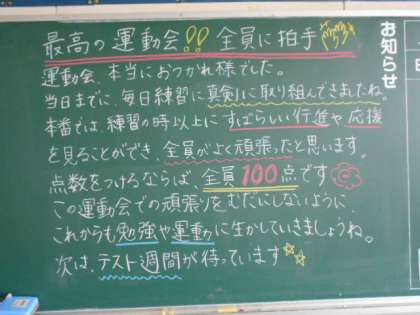 最高の運動会!! 全員に拍手
運動会、本当におつかれ様でした。
当日までに、毎日練習に真剣に取り組んできましたね。
本番では、練習の時以上にすばらしい行進や応援
を見ることができ、全員がよく頑張ったと思います。
点数をつけるならば、全員100点です
この運動会での頑張りをむだにしないように、
これからも勉強や運動に生かしていきましょうね。
次は、テスト週間が待っています
お知らせ